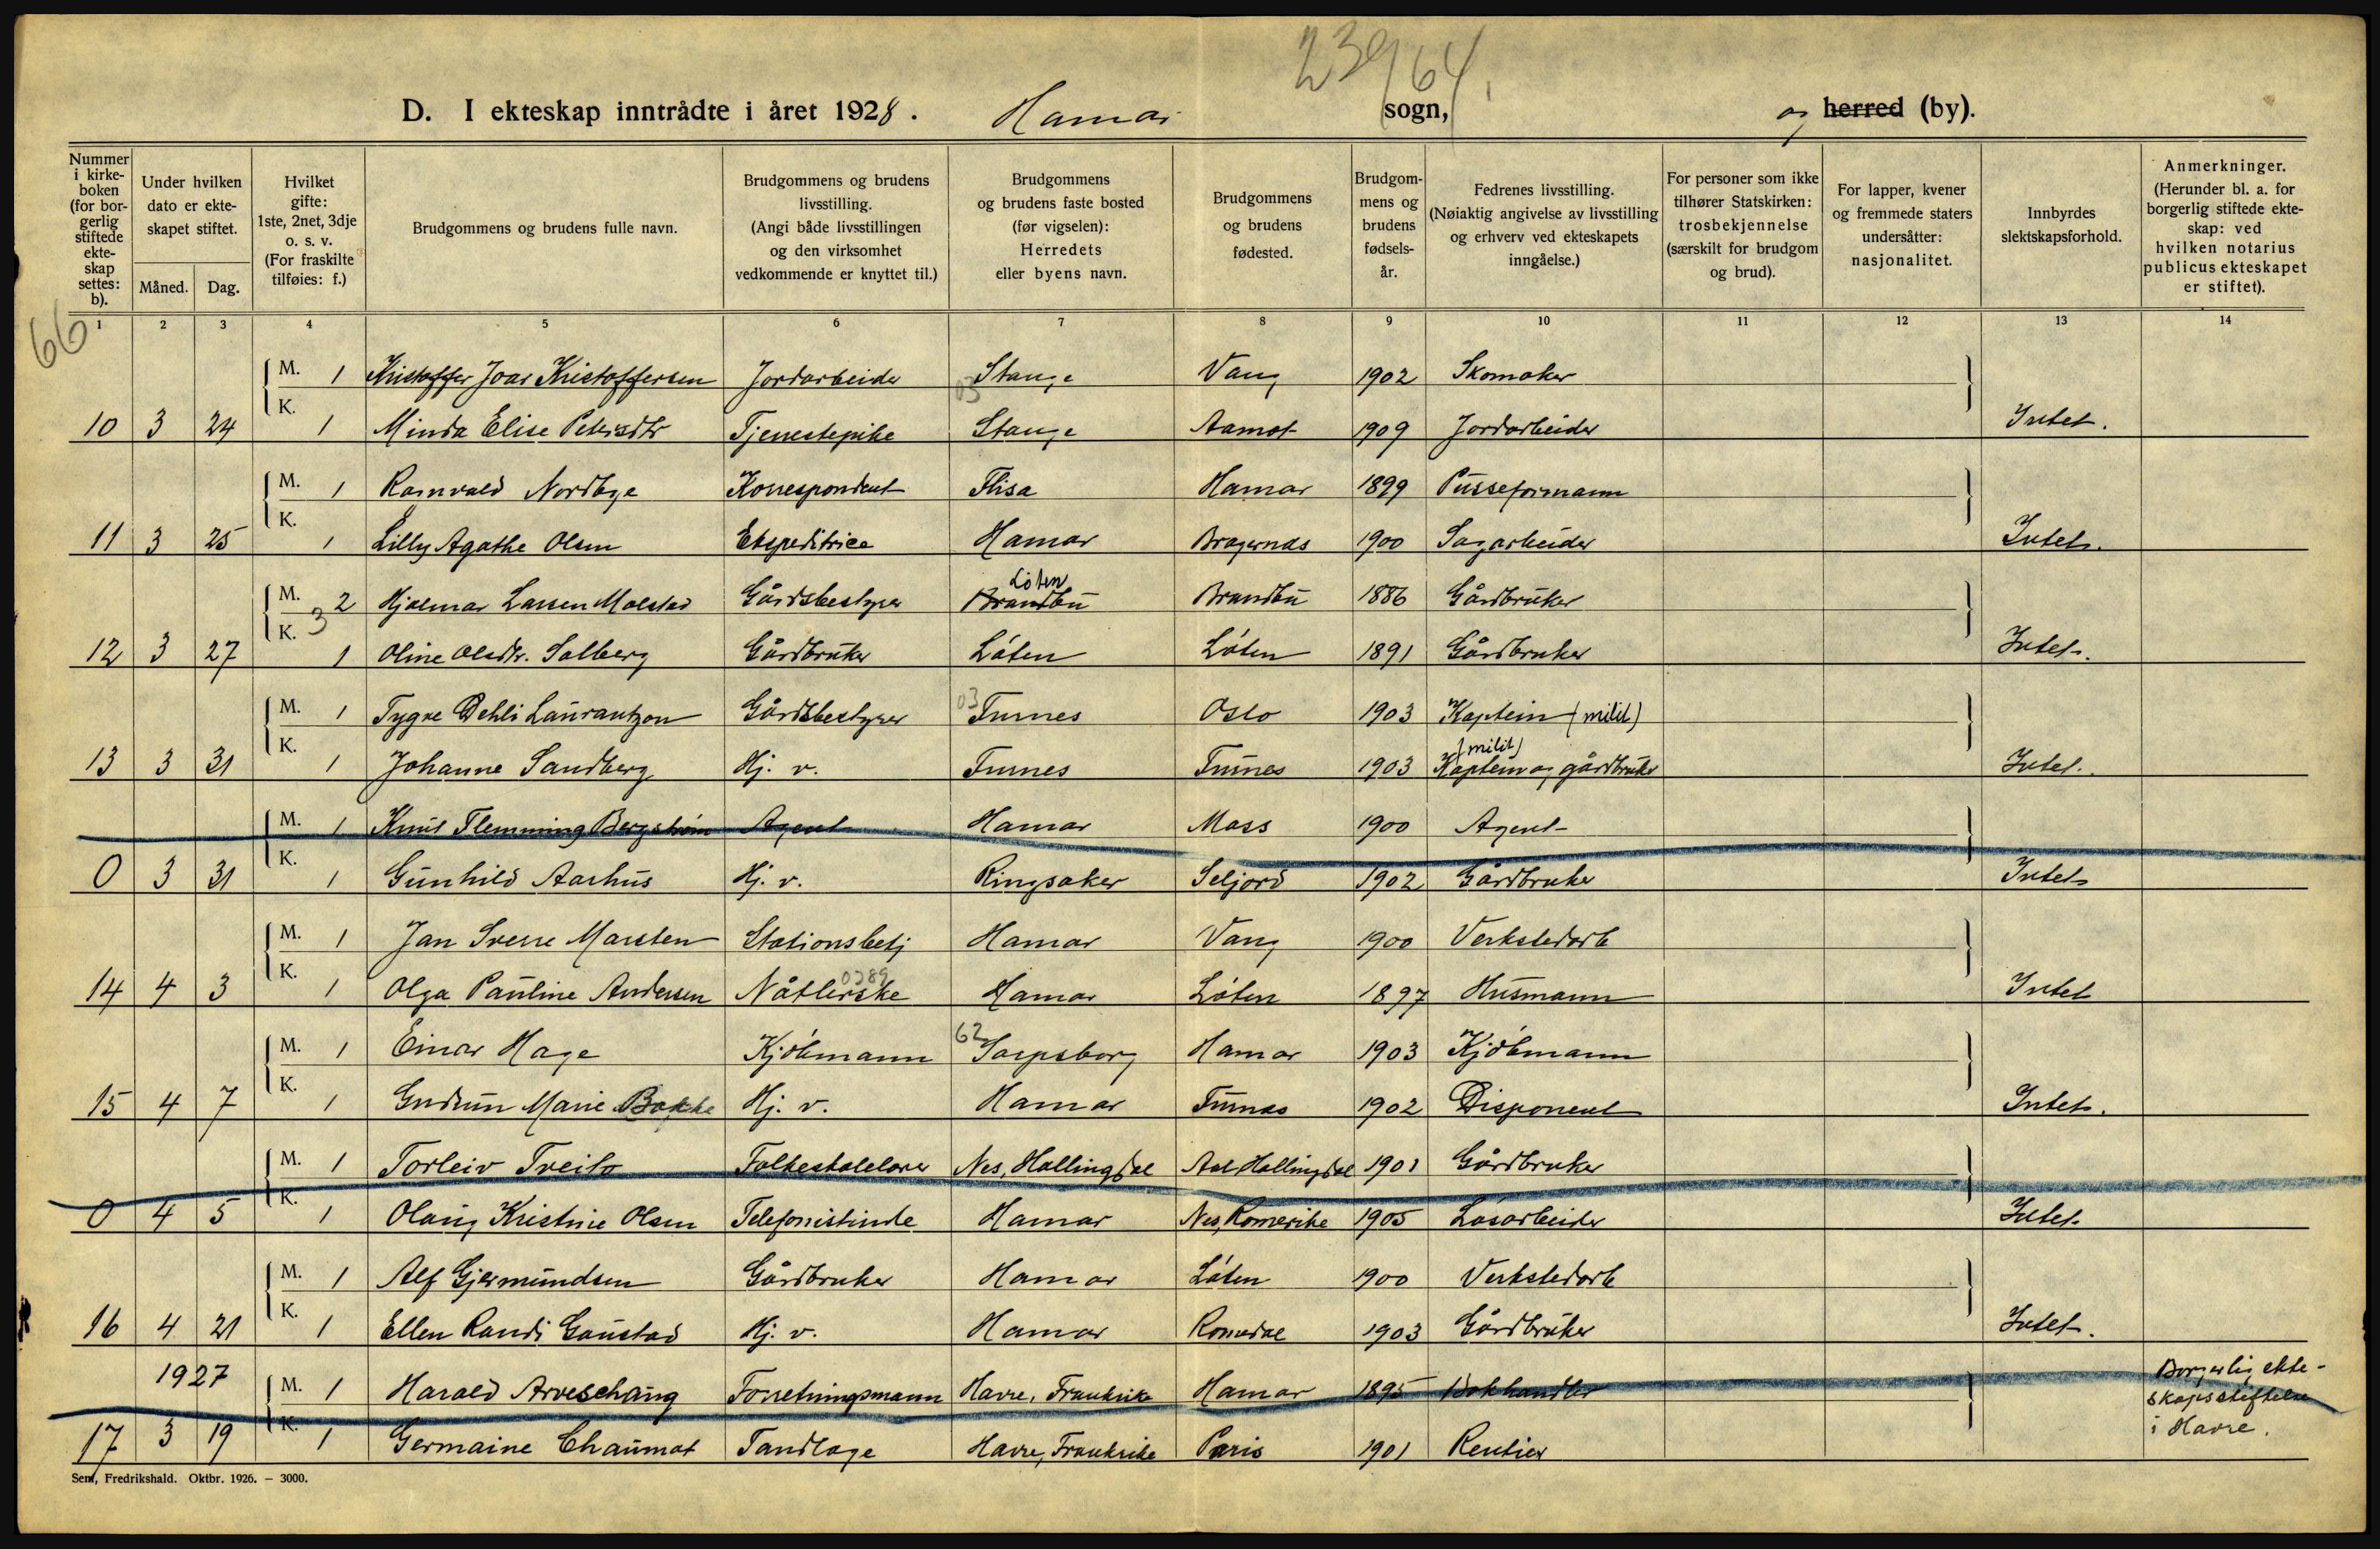 239/64.
D. I ekteskap inntrådte i året 1928. Hamar sogn, og herred (by).
Nummer i kirkeboken (for borgerlig stiftede ekteskap settes: b).
Under hvilken dato er ekteskapet stiftet.
Måned. Dag.
Hvilket gifte: 1ste, 2net, 3dje o. s. v. (For fraskilte tilføies: f.)
Brudgommens og brudens fulle navn.
Brudgommens og brudens livsstilling. (Angi både livsstillingen og den virksomhet vedkommende er knyttet til.)
Brudgommens og brudens faste bosted (før vigselen): Herredets eller byens navn.
Brudgommens og brudens fødested.
Brudgommens og brudens fødselsår.
Fedrenes livsstilling. (Nøiaktig angivelse av livsstilling og erhverv ved ekteskapets inngåelse.)
For personer som ikke tilhører Statskirken: trosbekjennelse (særskilt for brudgom og brud).
For lapper, kvener og fremmede staters undersåtter: nasjonalitet.
Innbyrdes slektskapsforhold.
Anmerkninger. (Herunder bl. a. for borgerlig stiftede ekteskap: ved hvilken notarius publicus ekteskapet er stiftet).
1 2 3 4 5 6 7 8 9 10 11 12 13 14
66
M. 1 Kristoffer Joar Kristoffersen Jordarbeider 03 Stange Vang 1902 Skomaker
10 3 24 K. 1 Minda Elise Petersdtr Tjenestepike Stange Aamot 1909 Jordarbeider Intet.
M. 1 Ramvald Nordbye Korrespondent Flisa Hamar 1899 Pusseformann
11 3 25 K. 1 Lilly Agathe Olsen Ekspeditrice Hamar Bragernes 1900 Sagarbeider Intet.
M. 3 2 Hjalmar Larsen Molstad Gårdsbestyrer Brandbu Løten Brandbu 1886 Gårdbruker
12 3 27 K. 1 Oline Olsdtr. Solberg Gårdbruker Løten Løten 1891 Gårdbruker Intet.
M. 1 Tygve Dehli Laurantzon Gårdsbestyrer 03 Furnes Oslo 1903 Kaptein (milit)
13 3 31 K. 1 Johanne Sandberg Hj. v. Furnes Furnes 1903 Kaptein (milit) og gårdbruker Intet.
M. 1 Knut Flemming Bergstrøm Agent Hamar Moss 1900 Agent
0 3 31 K. 1 Gunhild Aarhus Hj. v. Ringsaker Seljord 1902 Gårdbruker Intet
M. 1 Jan Sverre Marsten Stationsbetj Hamar Vang 1900 Verkstedarb
14 4 3 K. 1 Olga Pauline Andersen Nåtlerske 0389 Hamar Løten 1897 Husmann Intet
M. 1 Einar Hage Kjøbmann 62 Sarpsborg Hamar 1903 Kjøbmann
15 4 7 K. 1 Gudrun Marie Bakke Hj. v. Hamar Furnes 1902 Disponent Intet.
M. 1 Torleiv Treito Folkeskolelærer Nes, Hallingdal Aal Hallingdal 1901 Gårdbruker
0 4 5 K. 1 Olaug Kristine Olsen Telefonistinde Hamar Nes, Romerike 1905 Løsarbeider Intet.
M. 1 Alf Gjermundsen Gårdbruker Hamar Løten 1900 Verkstedarb
16 4 21 K. 1 Ellen Randi Gaustad Hj. v. Hamar Romedal 1903 Gårdbruker Intet.
1927 M. 1 Harald Arveschaug Forretningsmann Havre, Frankrike Hamar 1895 Bokhandler Borgerlig ekte-
skapsstiftelse
17 3 19 K. 1 Germaine Chaumat Tandlæge Havre, Frankrike Paris 1901 Rentier i Havre.
Sem, Fredrikshald. Oktbr. 1926. — 3000.